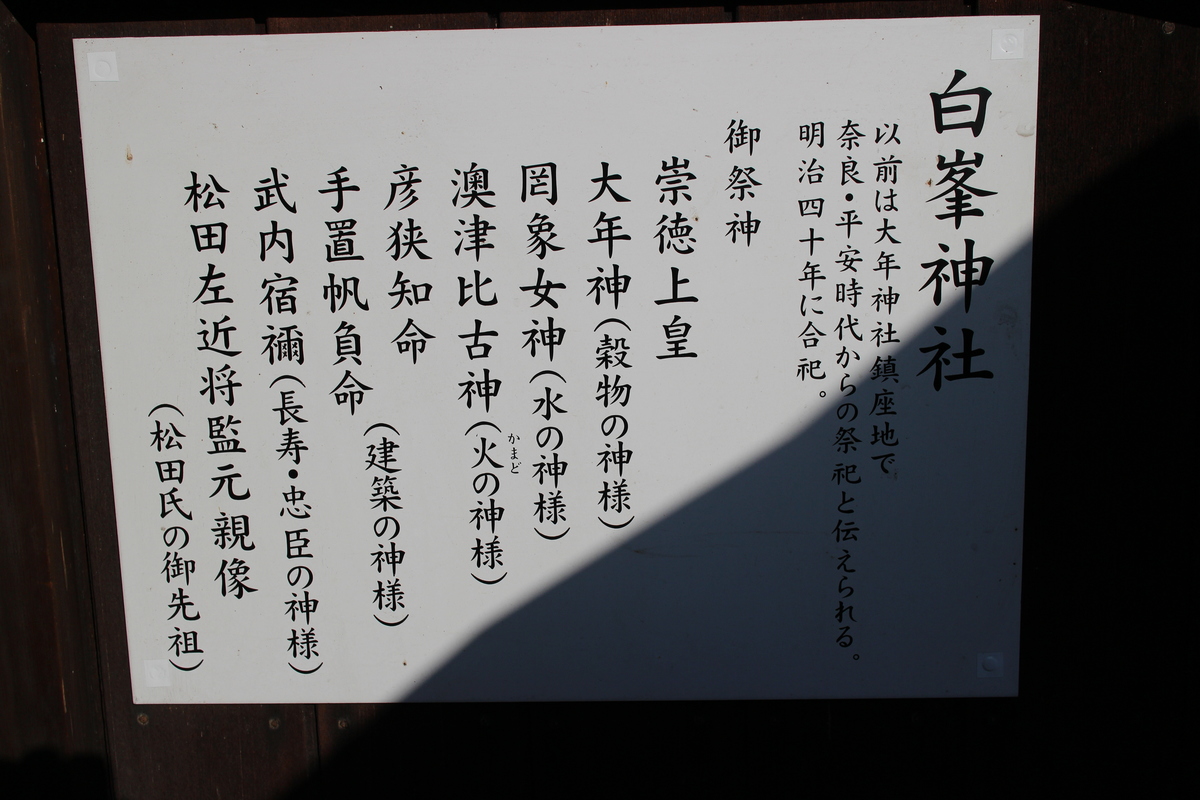 白峯神社
以前は大年神社鎮座地で
奈良・平安時代からの祭祀と伝えられる。
明治四十年に合祀。
御祭神
崇徳上皇
大年神(穀物の神様)
罔象女神(水の神様)
澳津比古神(火の神様)
かまど
彦狭知命
手置帆負命
(建築の神様)
武内宿禰(長寿・忠臣の神様)
松田左近将監元親像
(松田氏の御先祖)